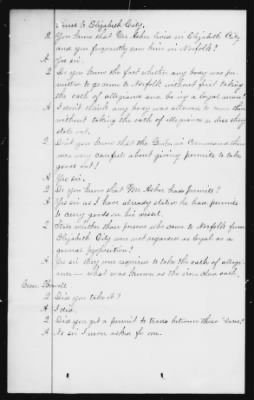 lines to Elizabeth City.
Q You know that Mr. Asher lived in Elizabeth City
and you frequently saw him in Norfolk?
A Yes sir.
Q Do you know the fact whether any body was per-
mitted to go down to Norfolk without first taking
the oath of allegiance and be in a loyal man?
A I don't think any body was allowed to come there
without taking the oath of allegiance or does they
stole out.
Q Did you know that the Federal Commanders there
was very careful about giving permits to take
goods out?
A Yes sir.
Q Do you know that Mr. Asher has permits?
A Yes sir as I have already stated he has permits
to carry goods on his vessel.
Q State whether those persons who came to Norfolk from
Elizabeth City are not regarded as loyal as a
general proposition?
A Yes sir they were required to take the oath of allegi-
ance — what was known as the iron clad oath.
Cross
Q Did you take it?
A I did.
Q Did you get a permit to trade between these "lines"
A No sir I never asked for one.